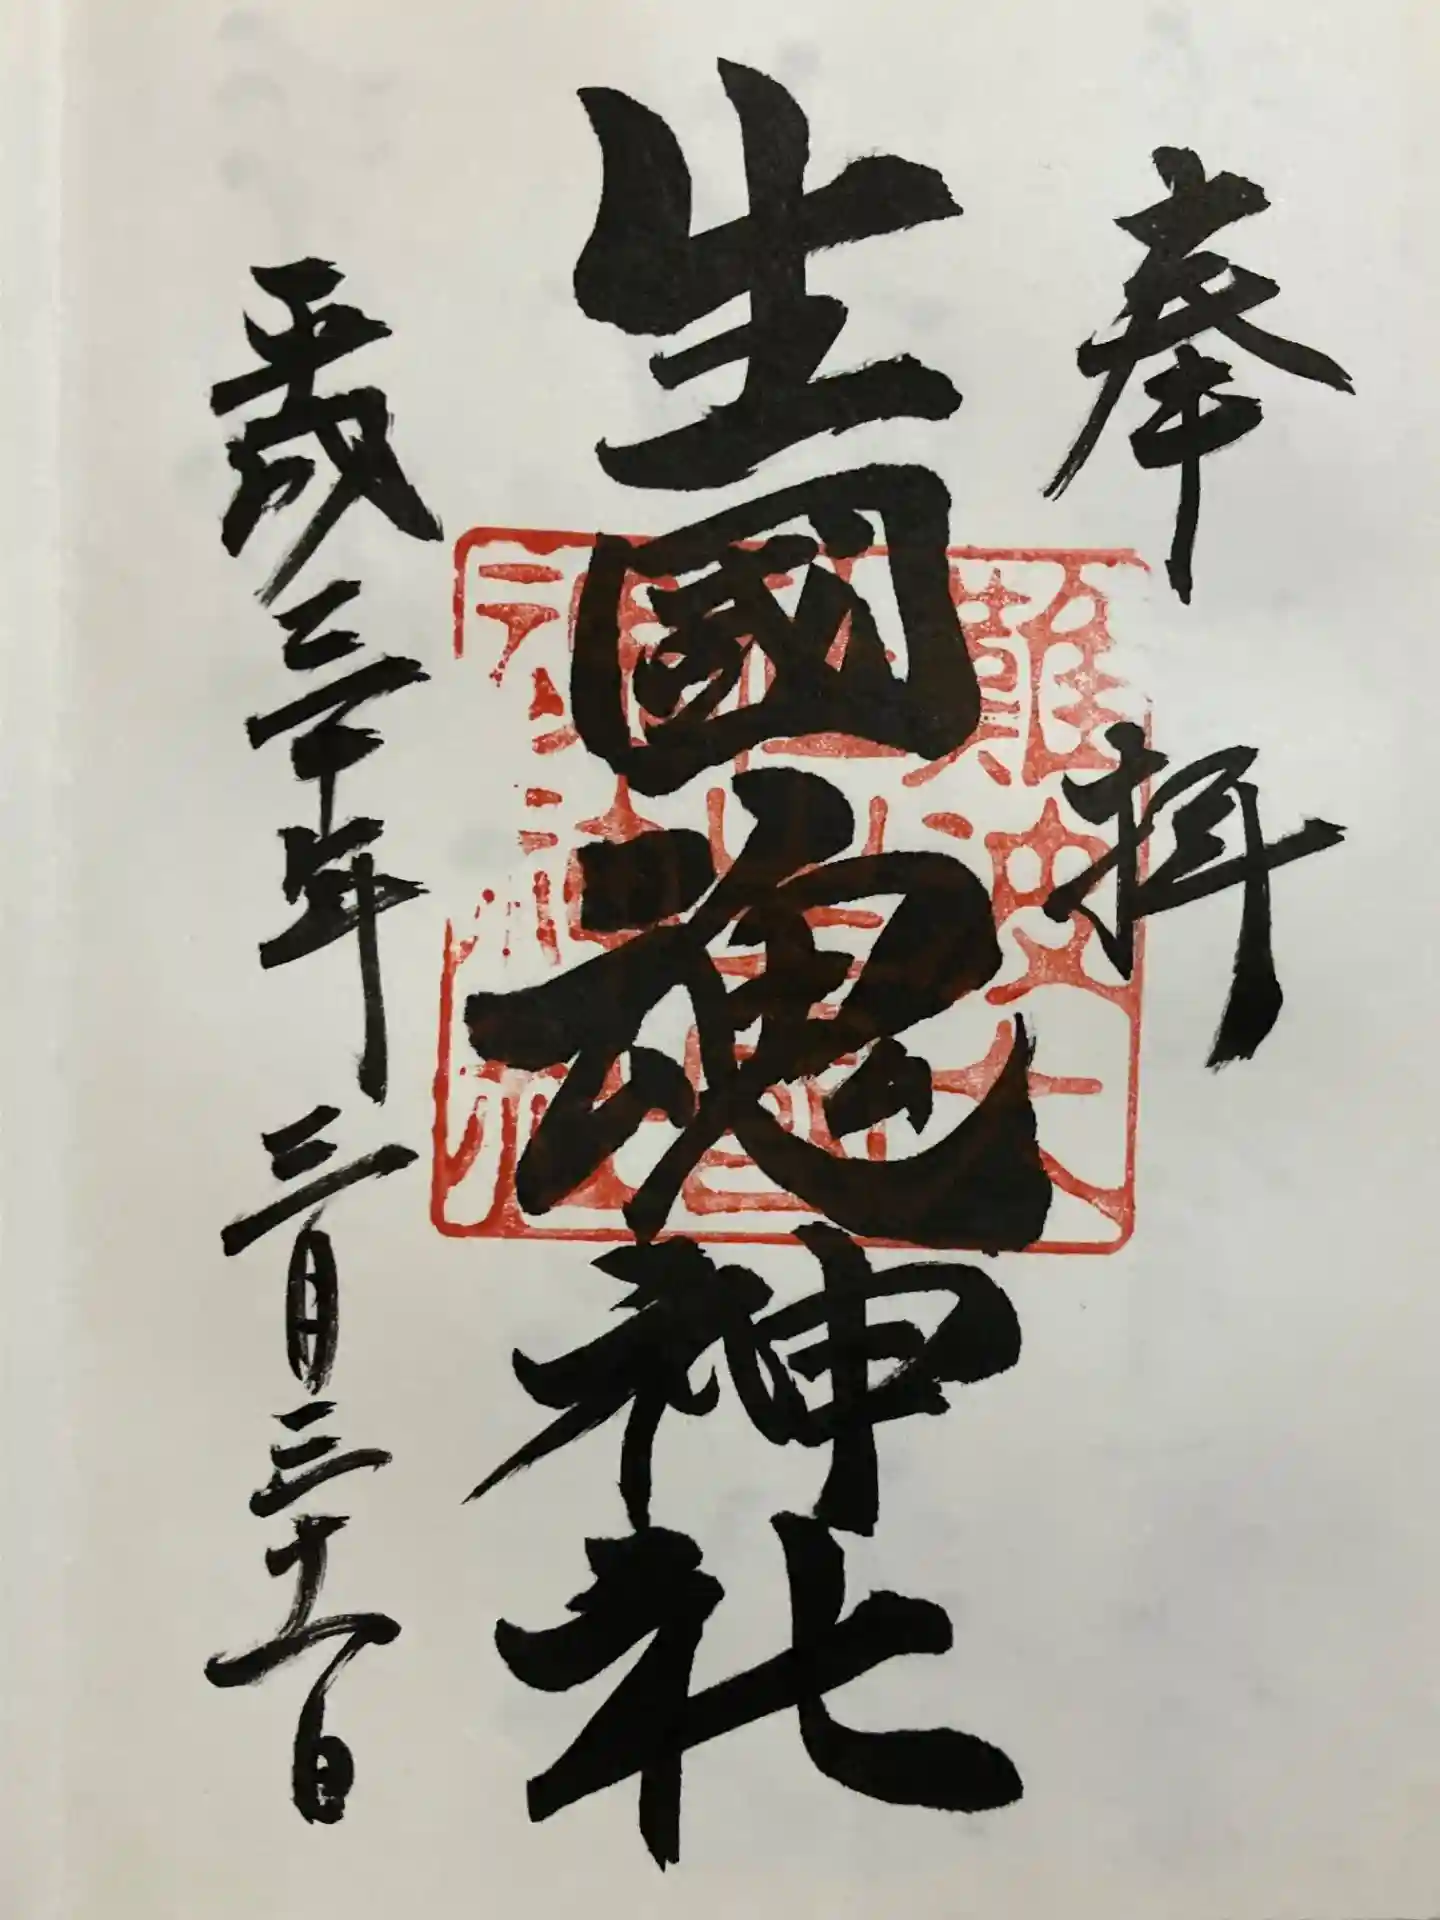 奉拝
生國魂神社
平成三十年三月三十一日
難波大